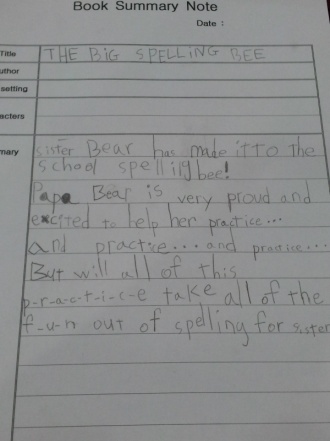 Book Summary Note
Date :
Title THE BIG SPELLING BEE
uthor
setting
acters
mary sister Bear has made it to the
school spelling bee!
Papa Bear is very proud and
excited to help her practice...
and practice... and practice...
But will all of this
p-r-a-c-t-i-c-e take all of the
f-u-n out of spelling for sister